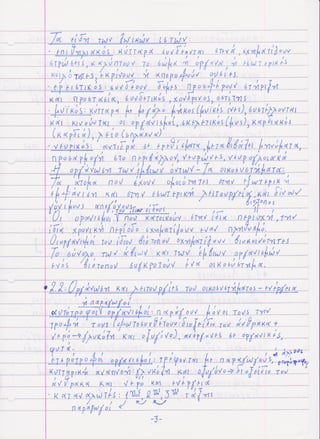 Τα είδη των ζωικών ιστών
· επιθηλιακός: κύτταρα συνδέονται στενά, σχηματίζουν
στρώσεις, καλύπτουν το σώμα ή όργανα ή εσωτερικές
κοιλότητες, εκκρίνουν ή απορροφούν ουσίες
· ερειστικός: συνδέουν δομές, προσφέρουν στήριξη
και προστασία, συνδετικός, χόνδρινος, οστίτης
· μυϊκός: κύτταρα με μεγάλο μήκος (μυϊκές ίνες), συστέλλονται
και κινούνται οι οργανισμοί, σκελετικός (μύες), καρδιακός
(καρδιά), λείο (σπλάχνα)
· νευρικός: αντιδρά σε ερεθίσματα, μεταβιβάζει μηνύματα,
προσαρμογή στο περιβάλλον, νευρώνες, νευρογλοιακά
Η οργάνωση των έμβιων όντων - Τα οικοσυστήματα:
Τα άτομα που έχουν ομοιότητες στην εξωτερική
εμφάνιση και στην εσωτερική λειτουργία και δίνουν
γόνιμους απογόνους βιότοπος
του ίδιου είδους
Οι οργανισμοί που κατοικούν στην ίδια περιοχή, την
ίδια χρονική περίοδο σχηματίζουν έναν πληθυσμό.
Οι οργανισμοί του ίδιου βιότοπου σχηματίζουν βιοκοινότητες
Το σύνολο των άβιων και των έμβιων οργανισμών
ενός βιότοπου συγκροτούν ένα οικοσύστημα.
2.2: Οργάνωση και λειτουργίες του οικοσυστήματος - ενέργεια
ή παραγωγοί
αυτότροφοι οργανισμοί: παράγουν μόνοι τους την
τροφή τους (φωτοσυνθέτουν: διοξείδιο του άνθρακα +
νερό → γλυκόζη και οξυγόνο), ανόργανες σε οργανικές,
φυτά.
ετερότροφοι οργανισμοί: τρέφονται με παραγωγούς, ή άλλους
ετερότροφους
κυτταρική αναπνοή: γλυκόζη και οξυγόνο → διοξείδιο του
άνθρακα και νερό και ενέργεια
· καταναλωτές: 1ης, 2ης, 3ης τάξης
παραγωγοί
-3-